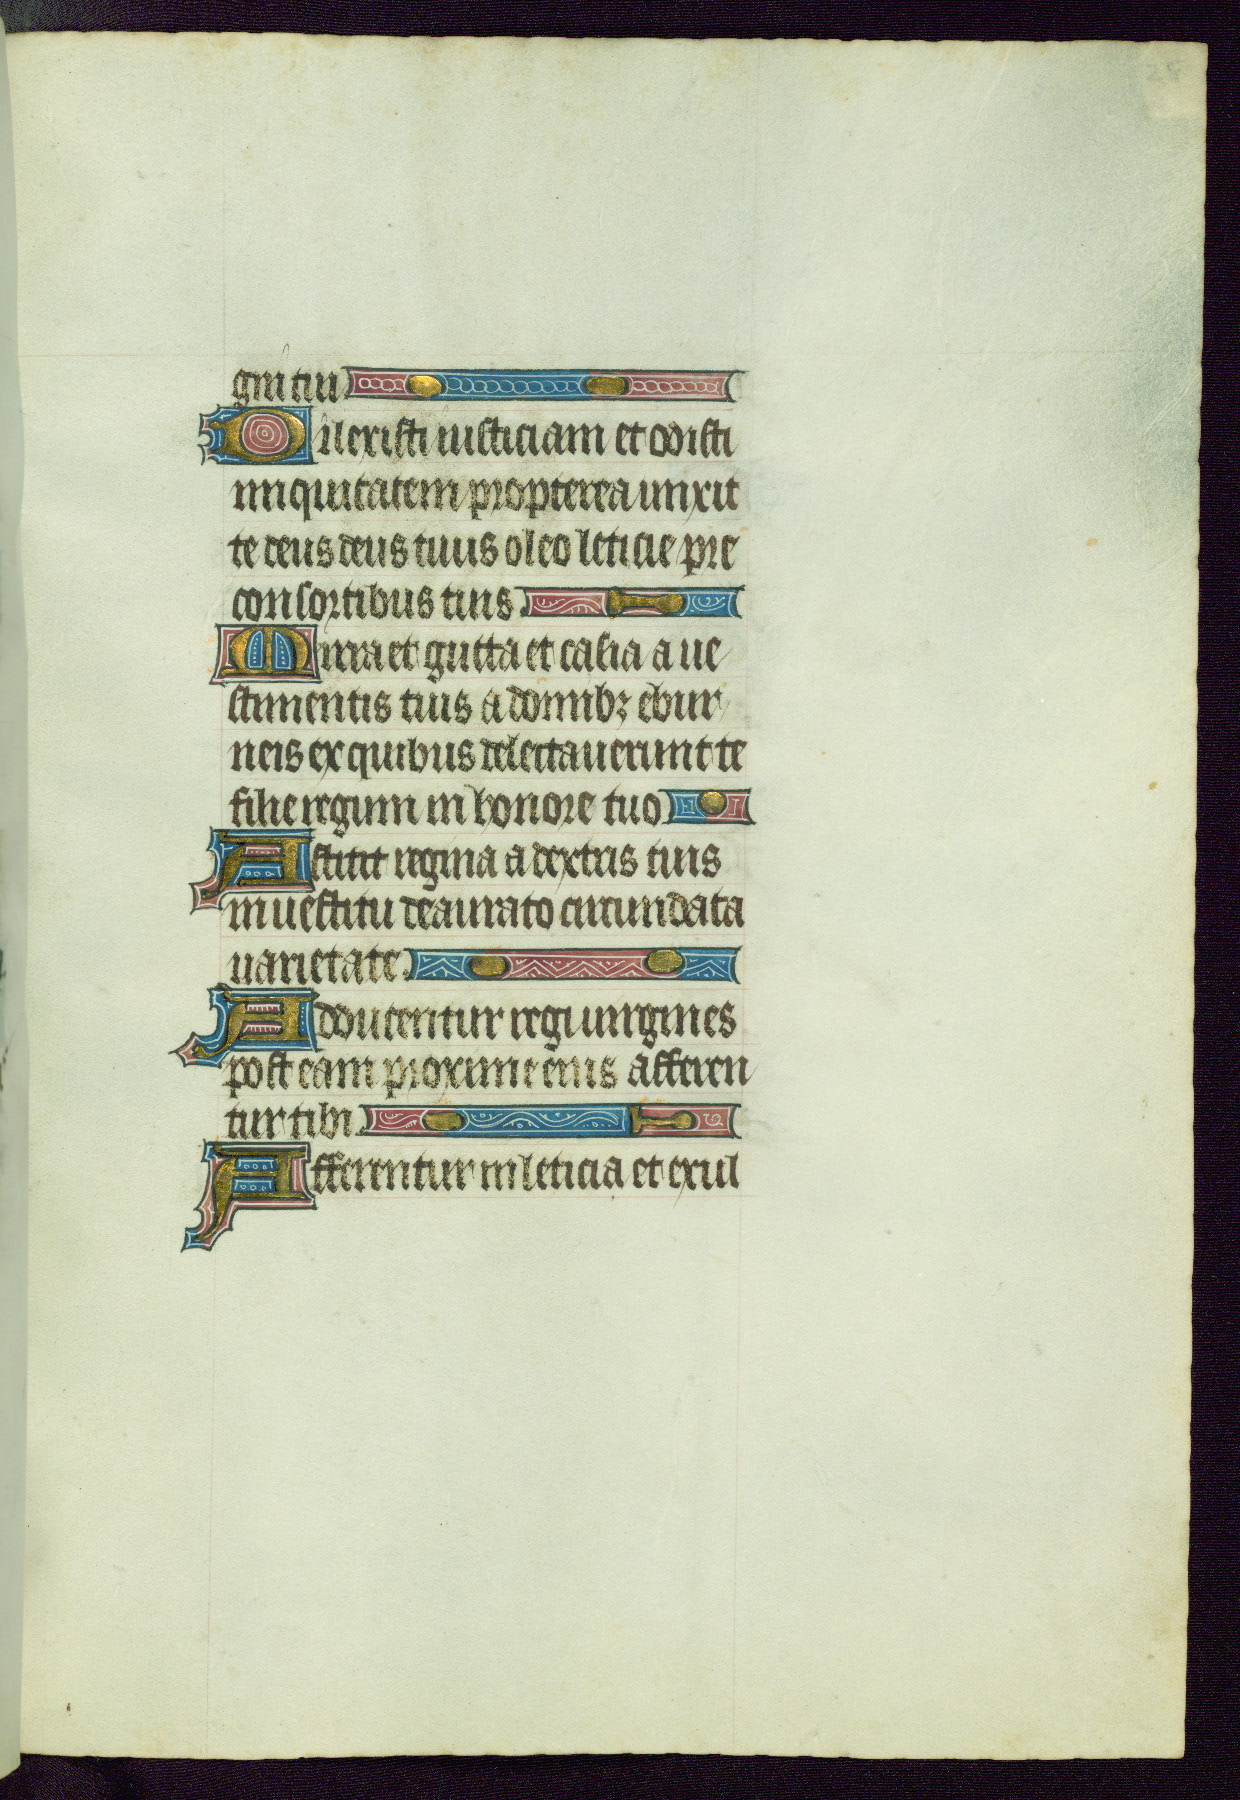 gni tui
Dilexisti iusticiam et odisti
iniquitatem propterea unxit
te deus deus tuus oleo leticie pre
consortibus tuis
Mirra et gutta et casia a ue
stimentis tuis a domibꝫ ebur
neis ex quibus delectauerunt te
filie regum in honore tuo
Astitit regina a dextris tuis
in uestitu deaurato circundata
uarietate
Adducentur regi uirgines
post eam proxime eius afferen
tur tibi
Afferentur in leticia et exul